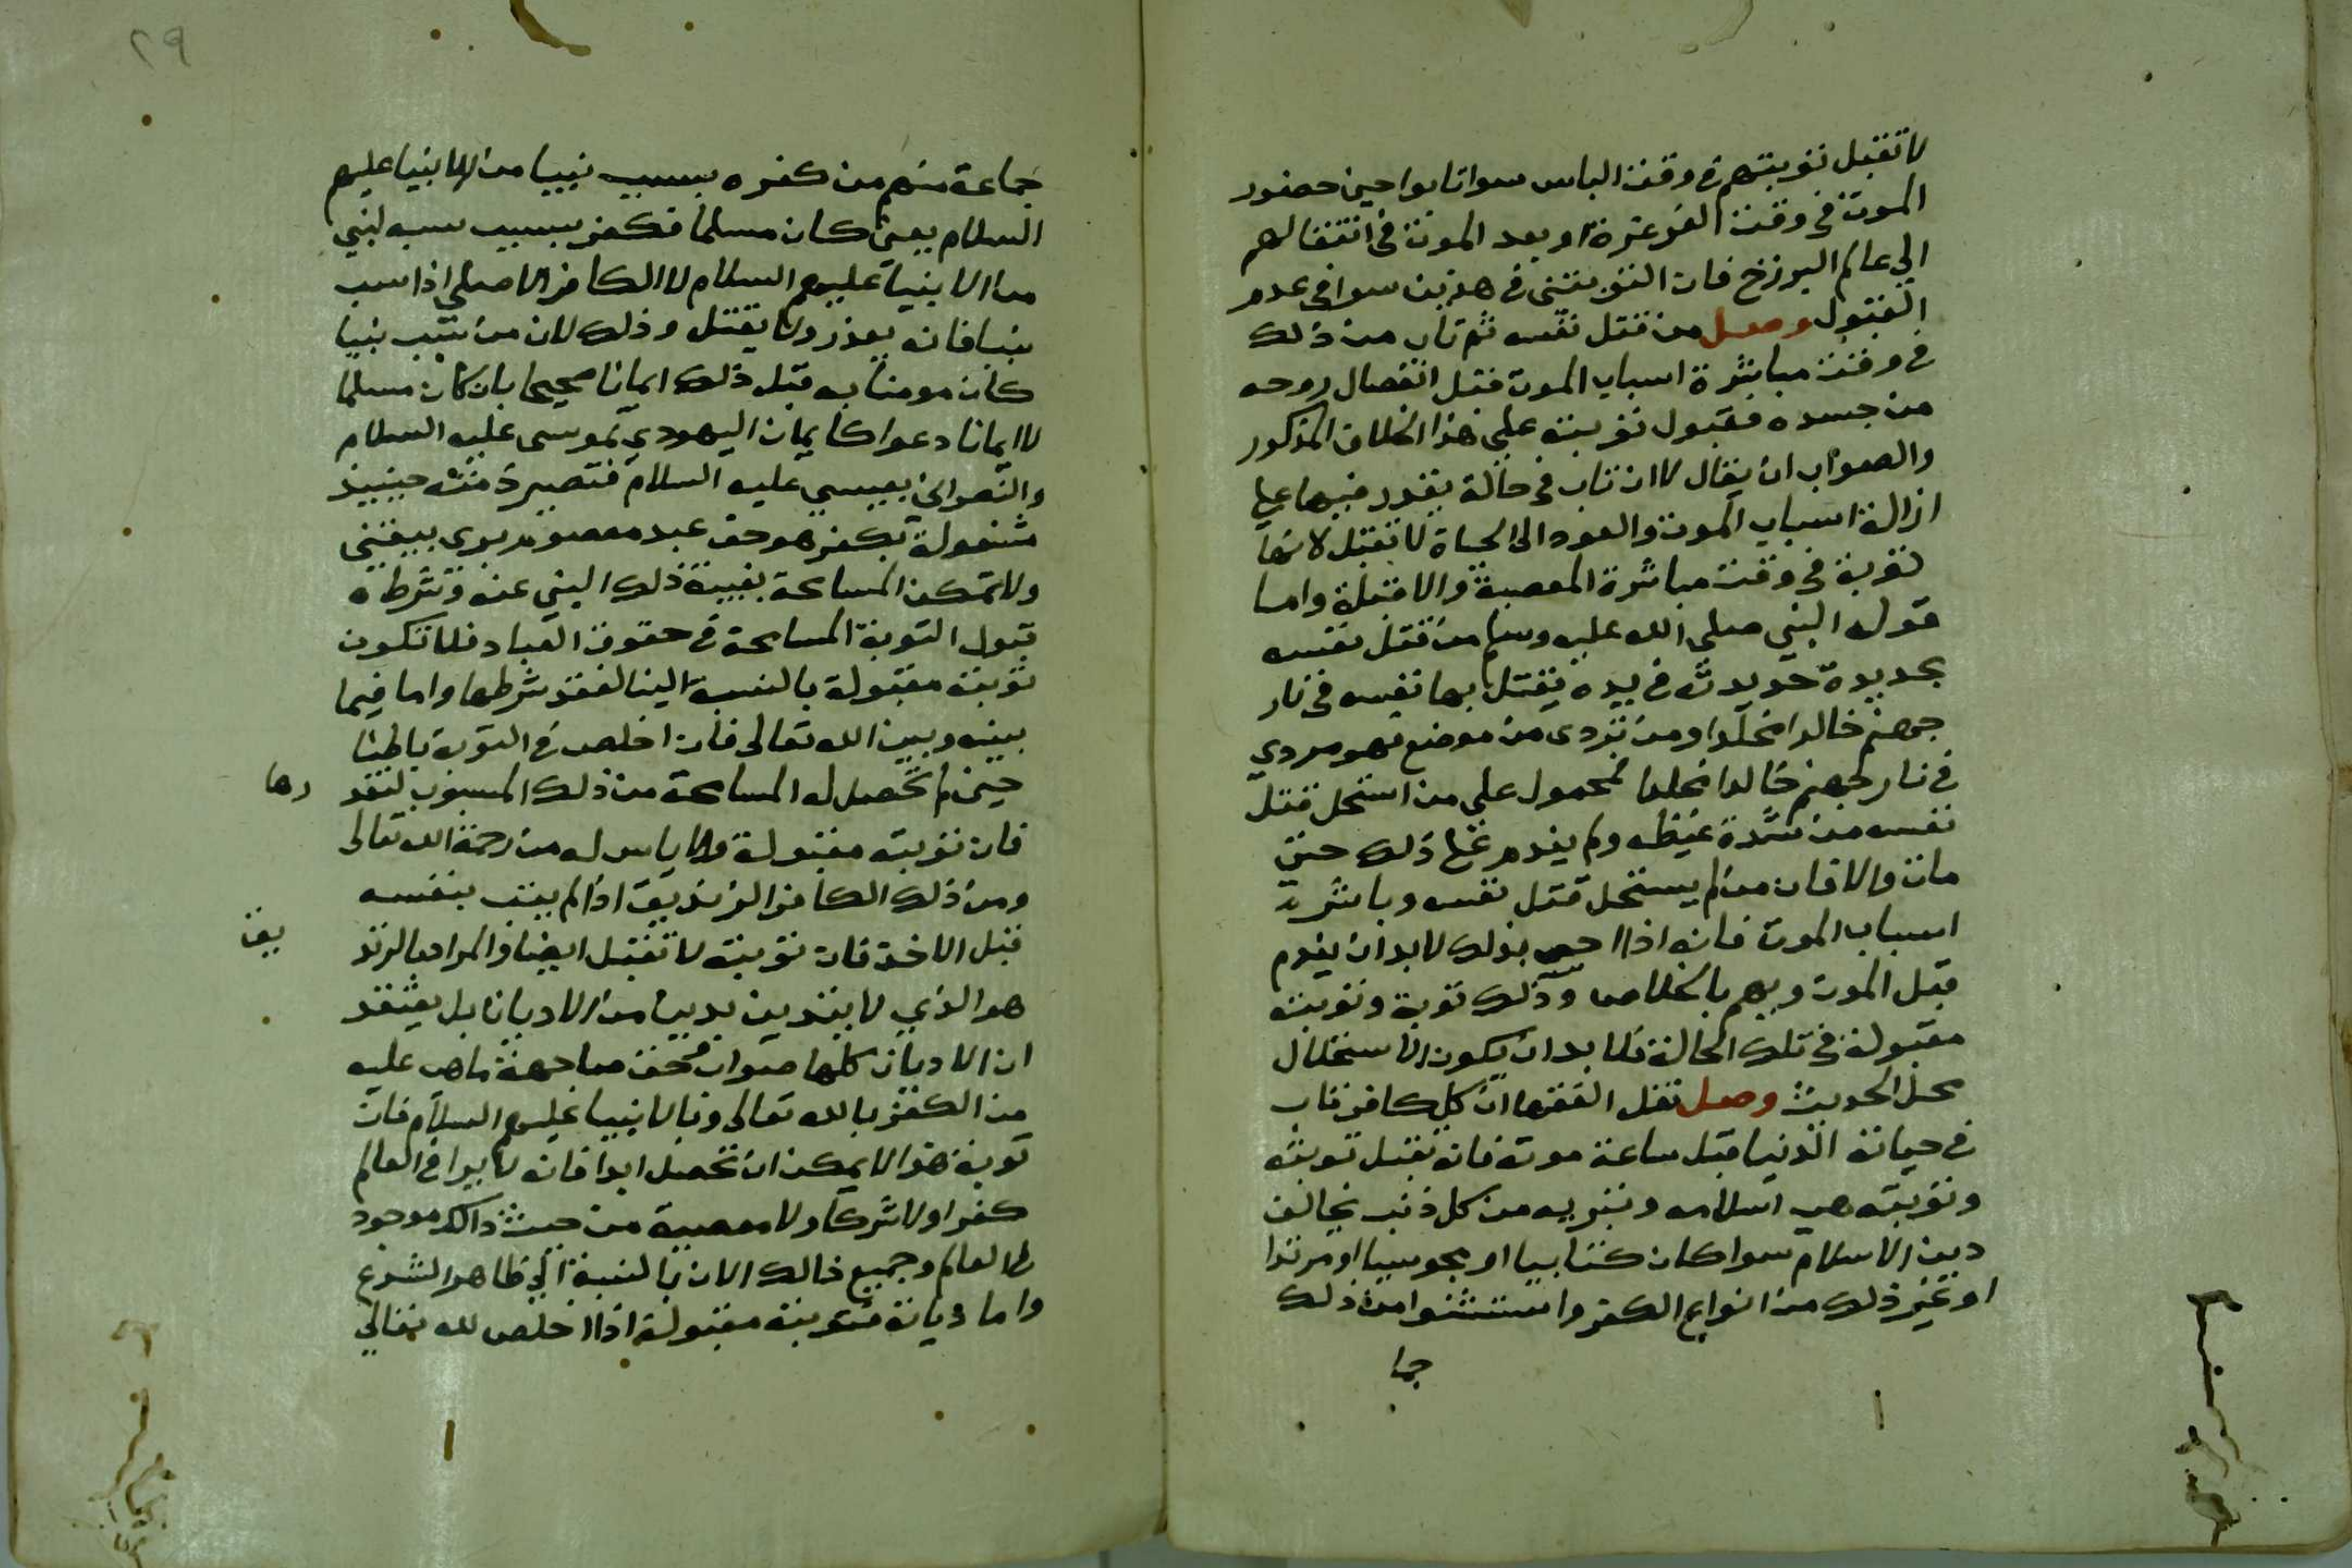 لا تقبل توبتهم في وقت الباس سوا تابوا حين حضور
الموت في وقت الغرغرة او بعد الموت في انتقالهم
الي عالم البرزخ فان التوبتين في هذين سوا في عدم
القبول وصل من قتل نفسه ثم تاب من ذلك
في وقت مباشرة اسباب الموت قبل انفصال روحه
من جسده فقبول توبته علي هذا الخلاف المذكور
والصواب ان يقال لا ان تاب في حالة يقدر فيها علي
ازالة اسباب الموت والعود الى الحياة لا تقبل لانها
توبة في وقت مباشرة المعصية والا قبلة واما
قوله النبي صلى الله عليه وسلم من قتل نفسه
بحديدة حديدته في يده يقتل بها نفسه في نار
جهنم خالدا مخلدا ومن تردى من موضع فهو مردي
في نار جهنم خالدا مخلدا محمول على من استحل قتل
نفسه من شدة غيظه ولم يندم على ذلك حتى
مات والا فان من لم يستحل قتل نفسه وباشر
اسباب الموت فانه اذا احس بذلك لابد ان يندم
قبل الموت ويهم بالخلاص وذلك توبة وتوبته
مقبولة في تلك الحالة فلا بد ان يكون الاستحلال
محل الحديث وصل نقل الفقها ان كل كافر تاب
في حياته الدنيا قبل ساعة موته فانه تقبل توبته
وتوبته هي اسلامه وتبريه من كل ذنب يخالف
دين الاسلام سوا كان كتابيا او مجوسيا او مرتدا
او غير ذلك من انواع الكفر واستثنوا من ذلك
جما
٢٩
جماعة منهم من كفره بسبب نبيا من الانبيا عليهم
السلام يعني كان مسلما فكفر بسبب سبه لنبي
من الانبيا عليهم السلام لا الكافر الاصلي اذا سب
نبيا فانه يعذر ولا يقتل وذلك لان من سب نبيا
كان مومنا به قبل ذلك ايمانا صحيحا بان كان مسلما
لا ايمانا دعوا كايمان اليهودي بموسى عليه السلام
والنصراني بعيسي عليه السلام فتصير ذمته حينيذ
مشغولة بكفر هو حق عبد معصوم بري بيقين
ولا تمكن المسامحة بغيبة ذلك النبي عنه وشرطه
قبول التوبة المسامحة في حقوق العباد فلا تكون
توبته مقبولة بالنسبة الينا لفقد شرطها واما فيما
بينه وبين الله تعالى فان اخلص في التوبة باطنا
حين لم تحصل له المسامحة من ذلك المسبوب لتعذ
رها
فان توبته مقبولة ولا ياس له من رحمة الله تعالى
ومن ذلك الكافر الزنديق اذا لم يتب بنفسه
قبل الاخذ فان توبته لا تقبل ايضا والمراد بالزند
يق
هو الذي لا يتدين بدين من الاديان بل يعتقد
ان الاديان كلها صواب وحق من اجهة ما هي عليه
من الكفر بالله تعالى وبالانبيا عليهم السلام فان
توبة هذا لا يمكن ان تحصل ابدا فانه لا يرا في العالم
كفرا ولا شركا ولا معصية من حيث ذالك موجود
ظ العالم وجميع ذالك الان بالنسبة الي ظاهر الشرع
واما ديانة فتوبته مقبولة اذا اخلص لله تعالي